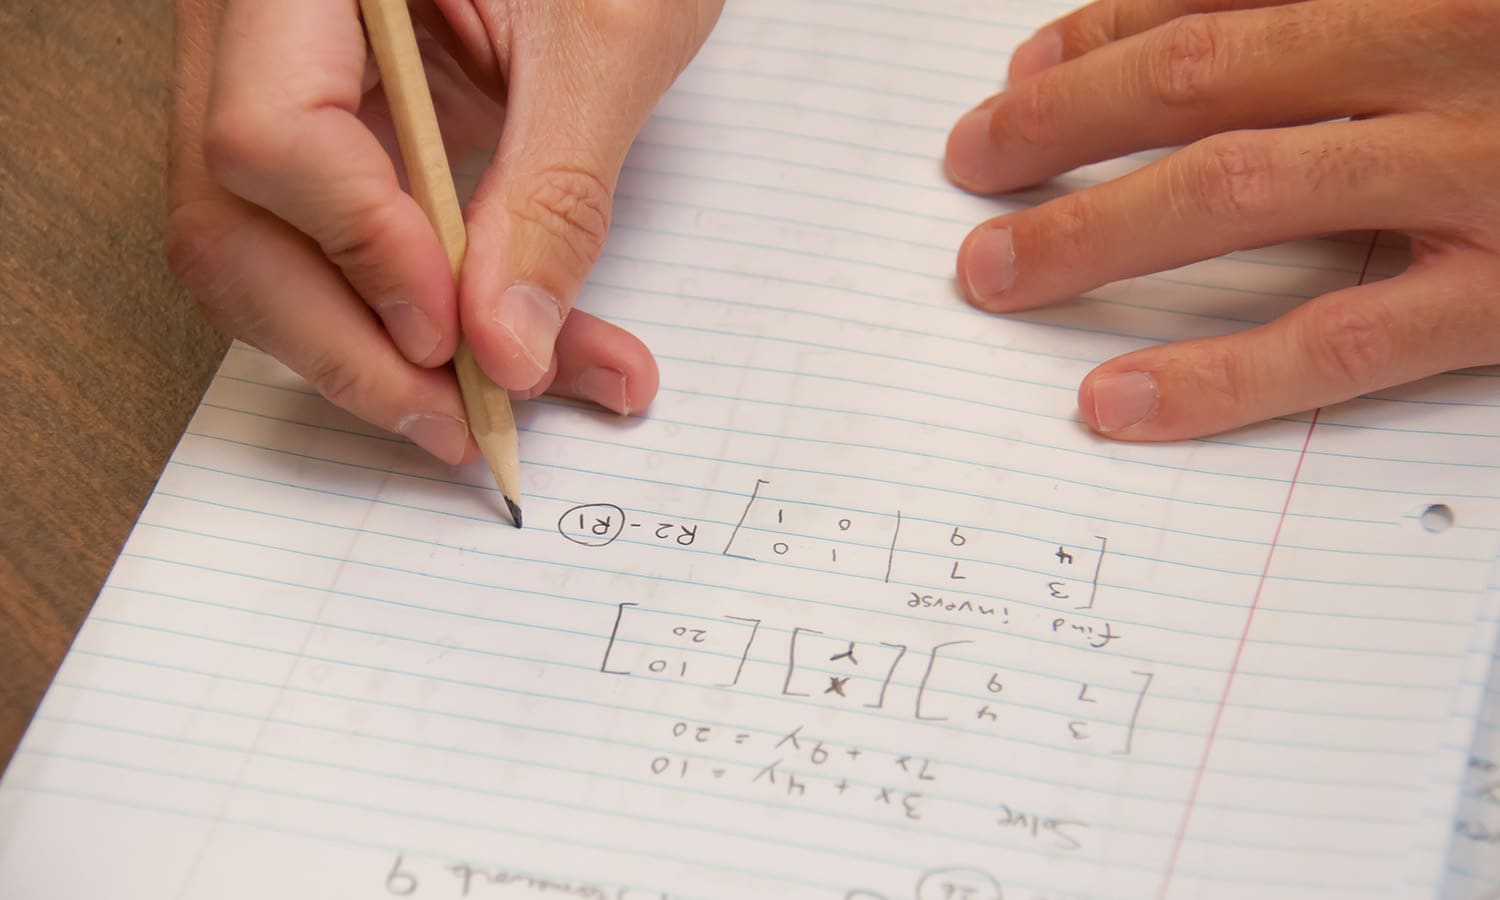 Homework 9
Solve 3x + 4y = 10
7x + 9y = 20
3 4 x 10
7 9 y 20
find inverse
3 7 | 1 0
4 9 | 0 1 R2 - R1